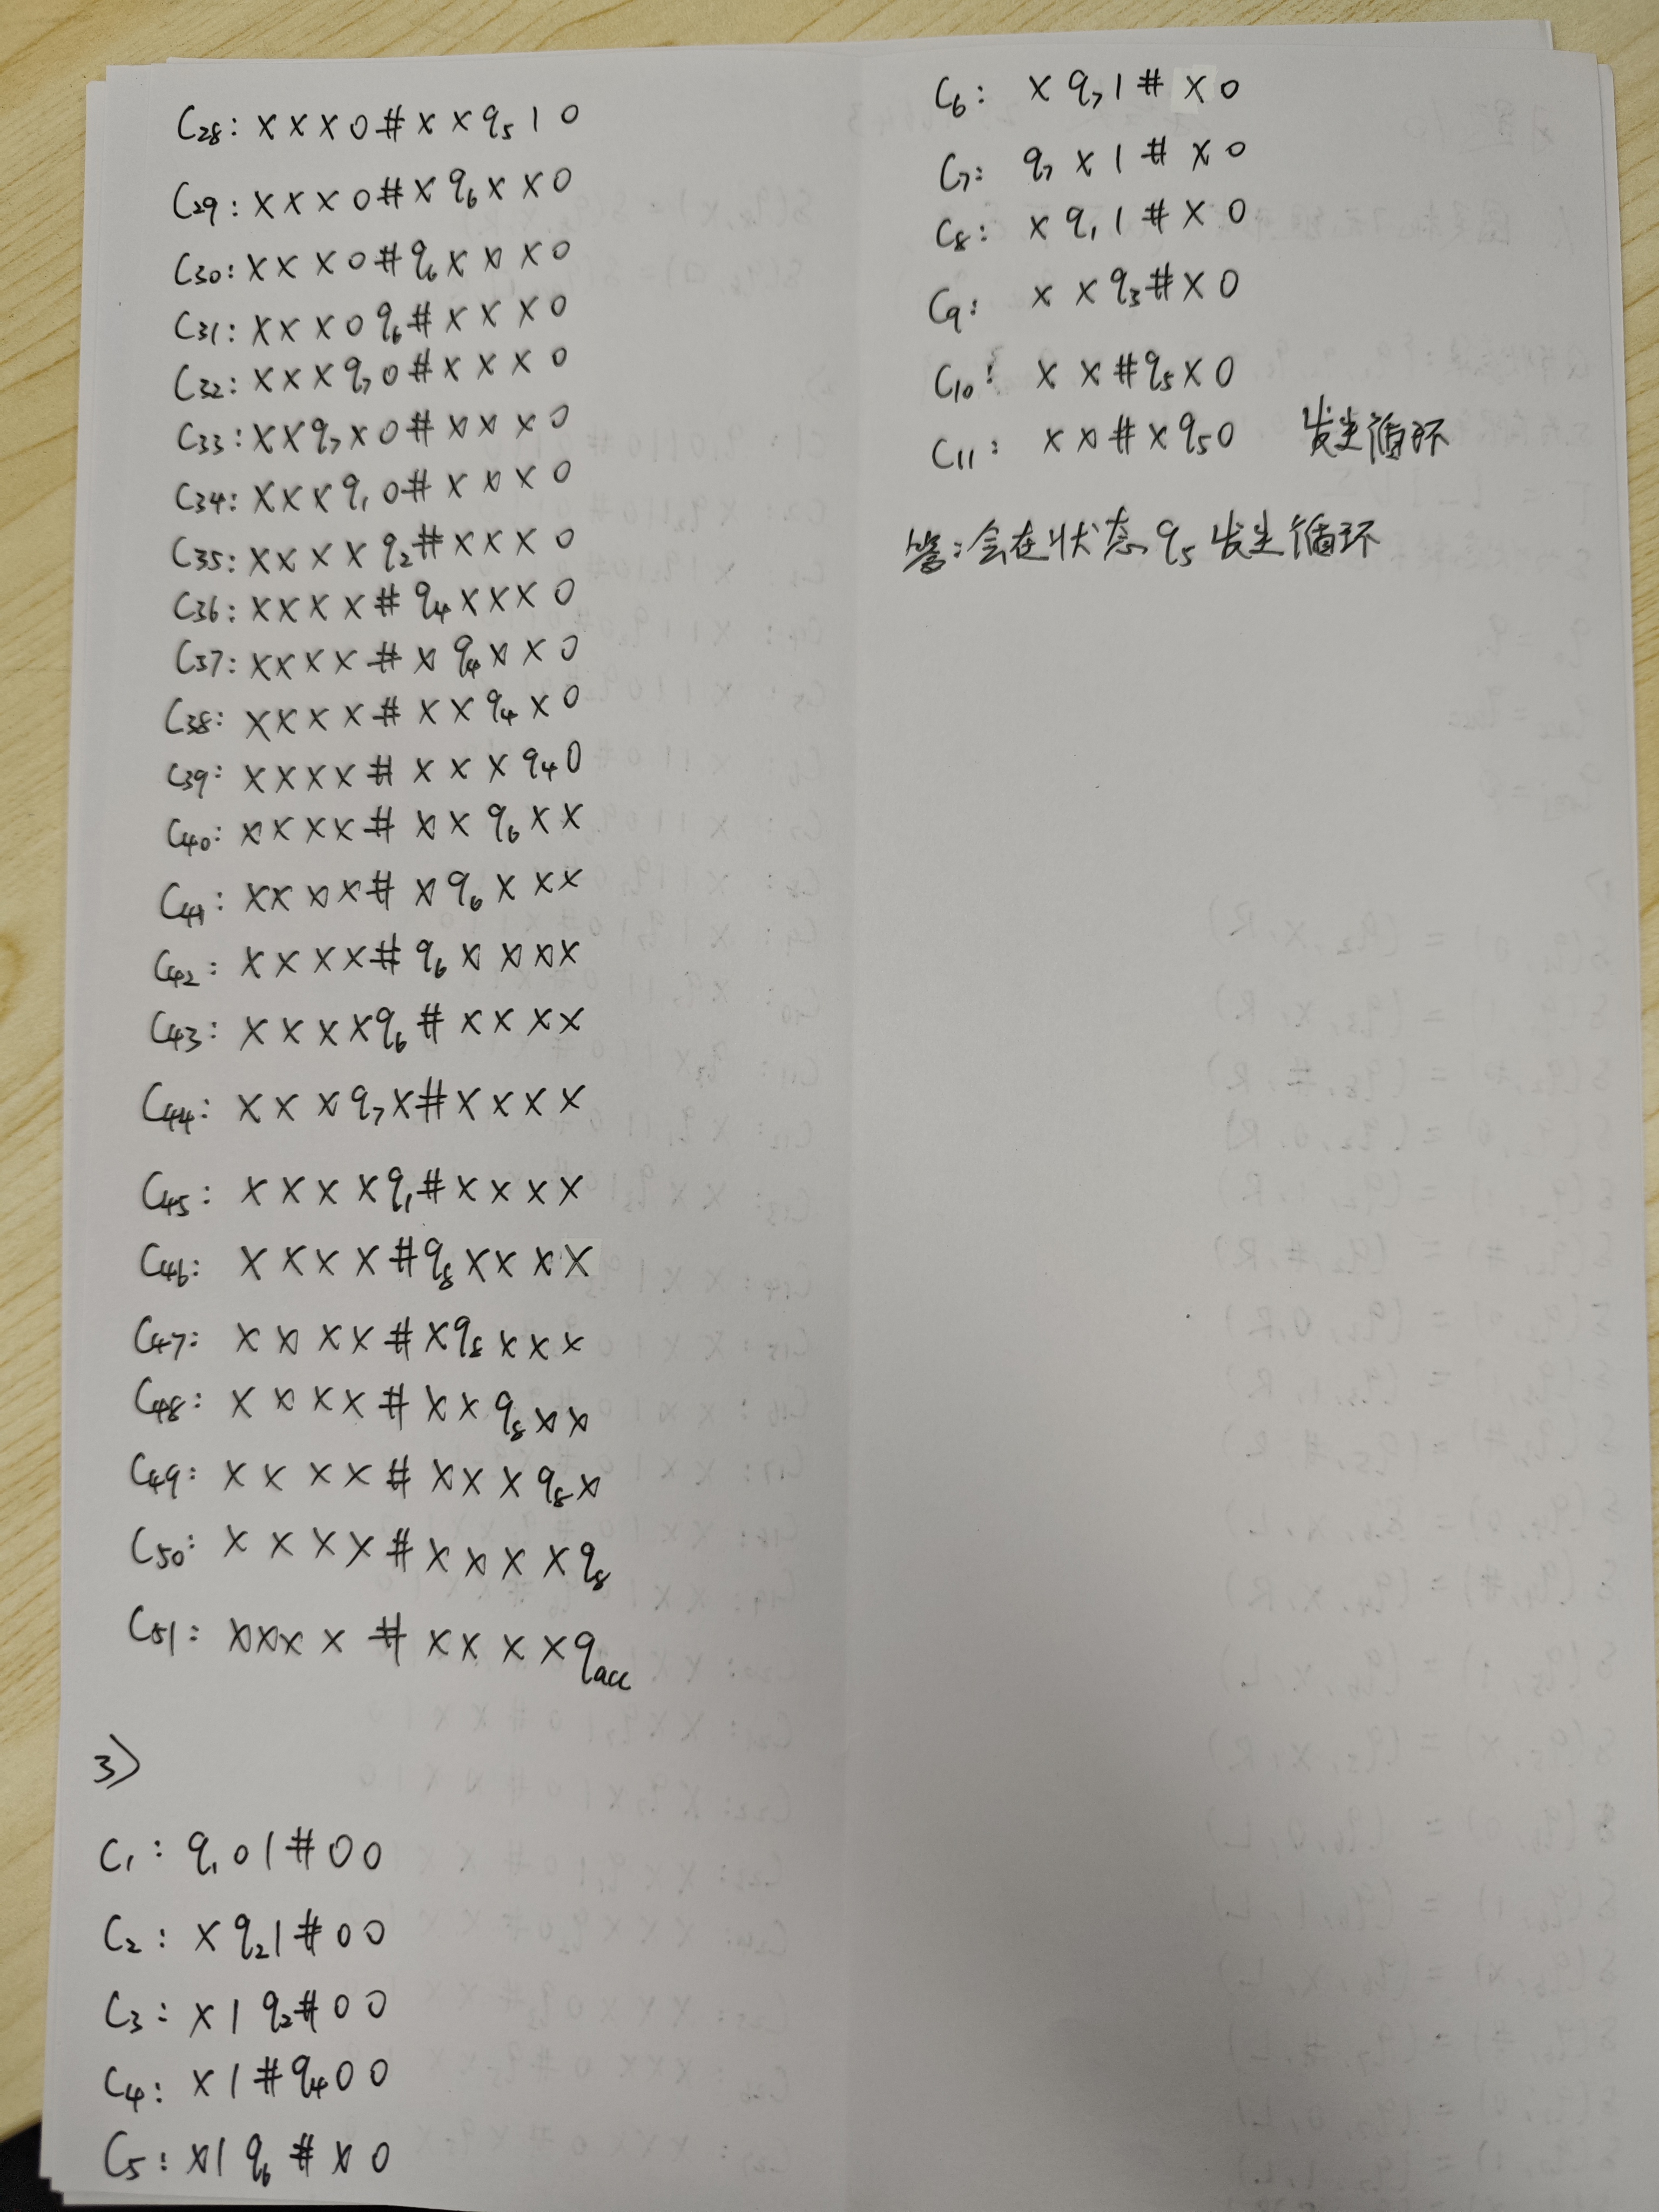 C28: x x x 0 # x x q5 1 0
C29: x x x 0 # x q6 x x 0
C30: x x x 0 # q6 x x x 0
C31: x x x 0 q6 # x x x 0
C32: x x x q7 0 # x x x 0
C33: x x q7 x 0 # x x x 0
C34: x x x q1 0 # x x x 0
C35: x x x x q2 # x x x 0
C36: x x x x # q4 x x x 0
C37: x x x x # x q4 x x 0
C38: x x x x # x x q4 x 0
C39: x x x x # x x x q4 0
C40: x x x x # x x q6 x x
C41: x x x x # x q6 x x x
C42: x x x x # q6 x x x x
C43: x x x x q6 # x x x x
C44: x x x q7 x # x x x x
C45: x x x x q1 # x x x x
C46: x x x x # q8 x x x x
C47: x x x x # x q8 x x x
C48: x x x x # x x q8 x x
C49: x x x x # x x x q8 x
C50: x x x x # x x x x q8
C51: x x x x # x x x x qacc
3)
C1: q1 0 1 # 0 0
C2: x q2 1 # 0 0
C3: x 1 q2 # 0 0
C4: x 1 # q4 0 0
C5: x 1 q6 # x 0
C6: x q7 1 # x 0
C7: q7 x 1 # x 0
C8: x q1 1 # x 0
C9: x x q3 # x 0
C10: x x # q5 x 0
C11: x x # x q5 0 发生循环
答:会在状态 q5 发生循环